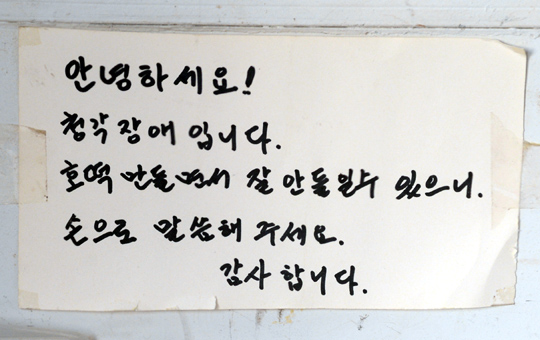 안녕하세요!
청각장애 입니다.
호떡 만들면서 잘 안들릴수 있으니.
손으로 말씀해 주세요.
감사합니다.